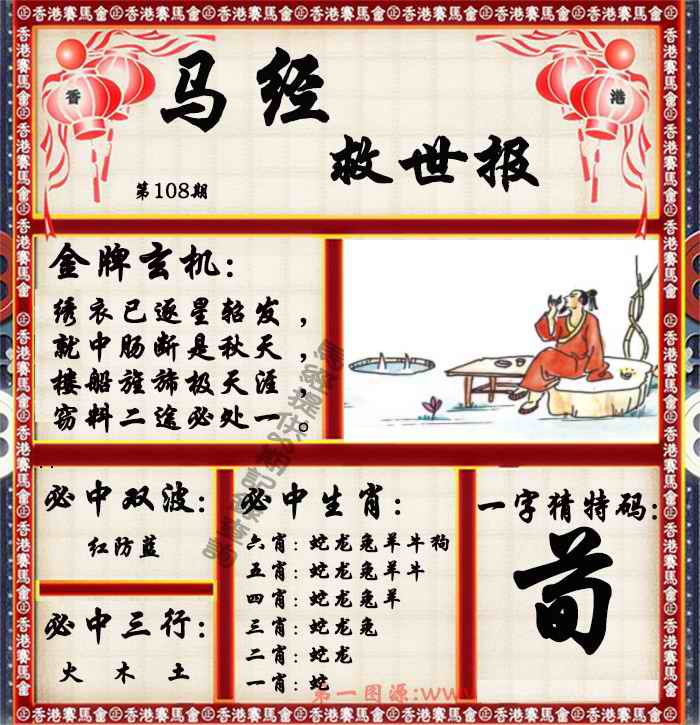 香港賽馬會
香 港
马经
救世报
第108期
金牌玄机：
绣衣已逐星轺发，
就中肠断是秋天，
楼船旌旆极天涯，
窃料二途必处一。
必中双波：
红防蓝
必中三行：
火 木 土
必中生肖：
六肖：蛇龙兔羊牛狗
五肖：蛇龙兔羊牛
四肖：蛇龙兔羊
三肖：蛇龙兔
二肖：蛇龙
一肖：蛇
一字猜特码：
荀
第一图源:www